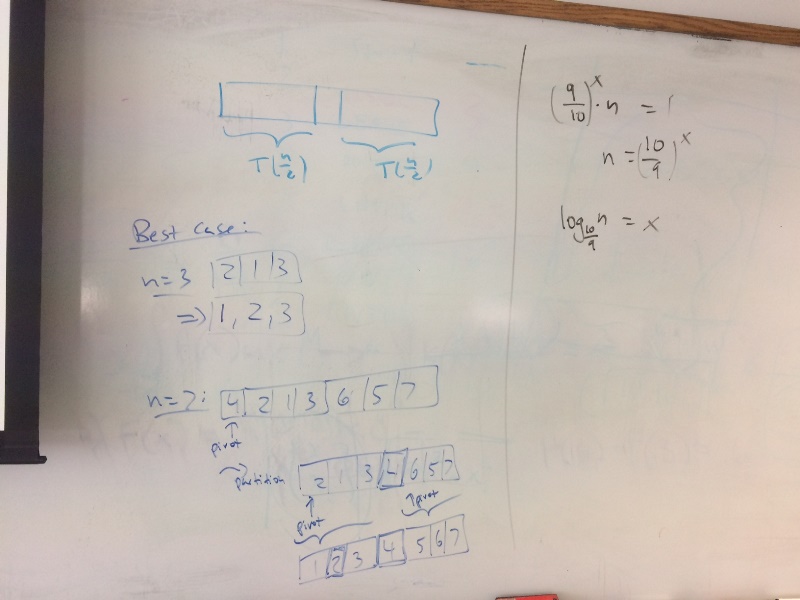 T(n/2) T(n/2)
Best case:
n=3 |2|1|3|
=> 1, 2, 3
n=7: 4|2|1|3|6|5|7
pivot
partition 2 1 3 4 6 5 7
pivot pivot
1 2 3 4 5 6 7
(9/10)^x · n = 1
n = (10/9)^x
log_{10/9} n = x